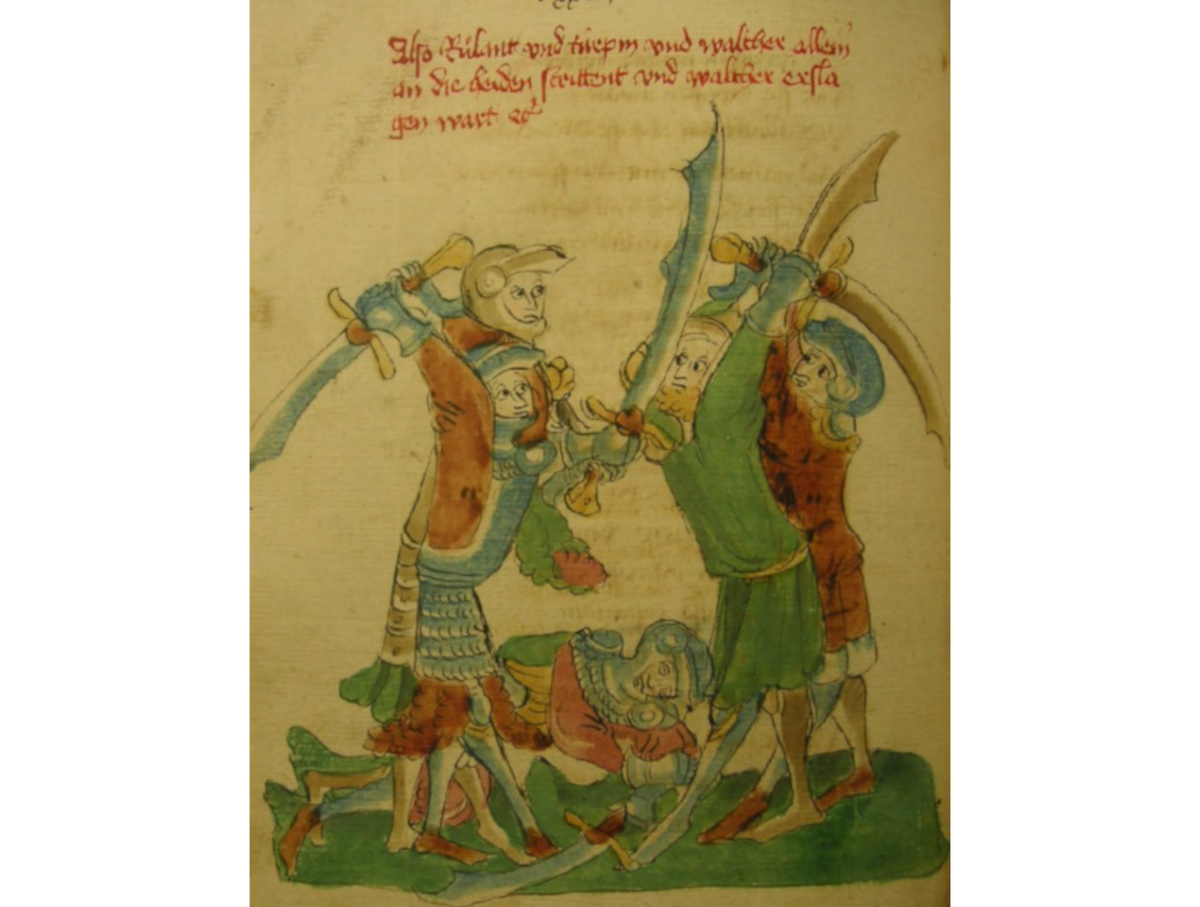 Also Růlant vnd tůrpin vnd walther allein
an die heiden strittent vnd walther ersla
gen wart ꝛc